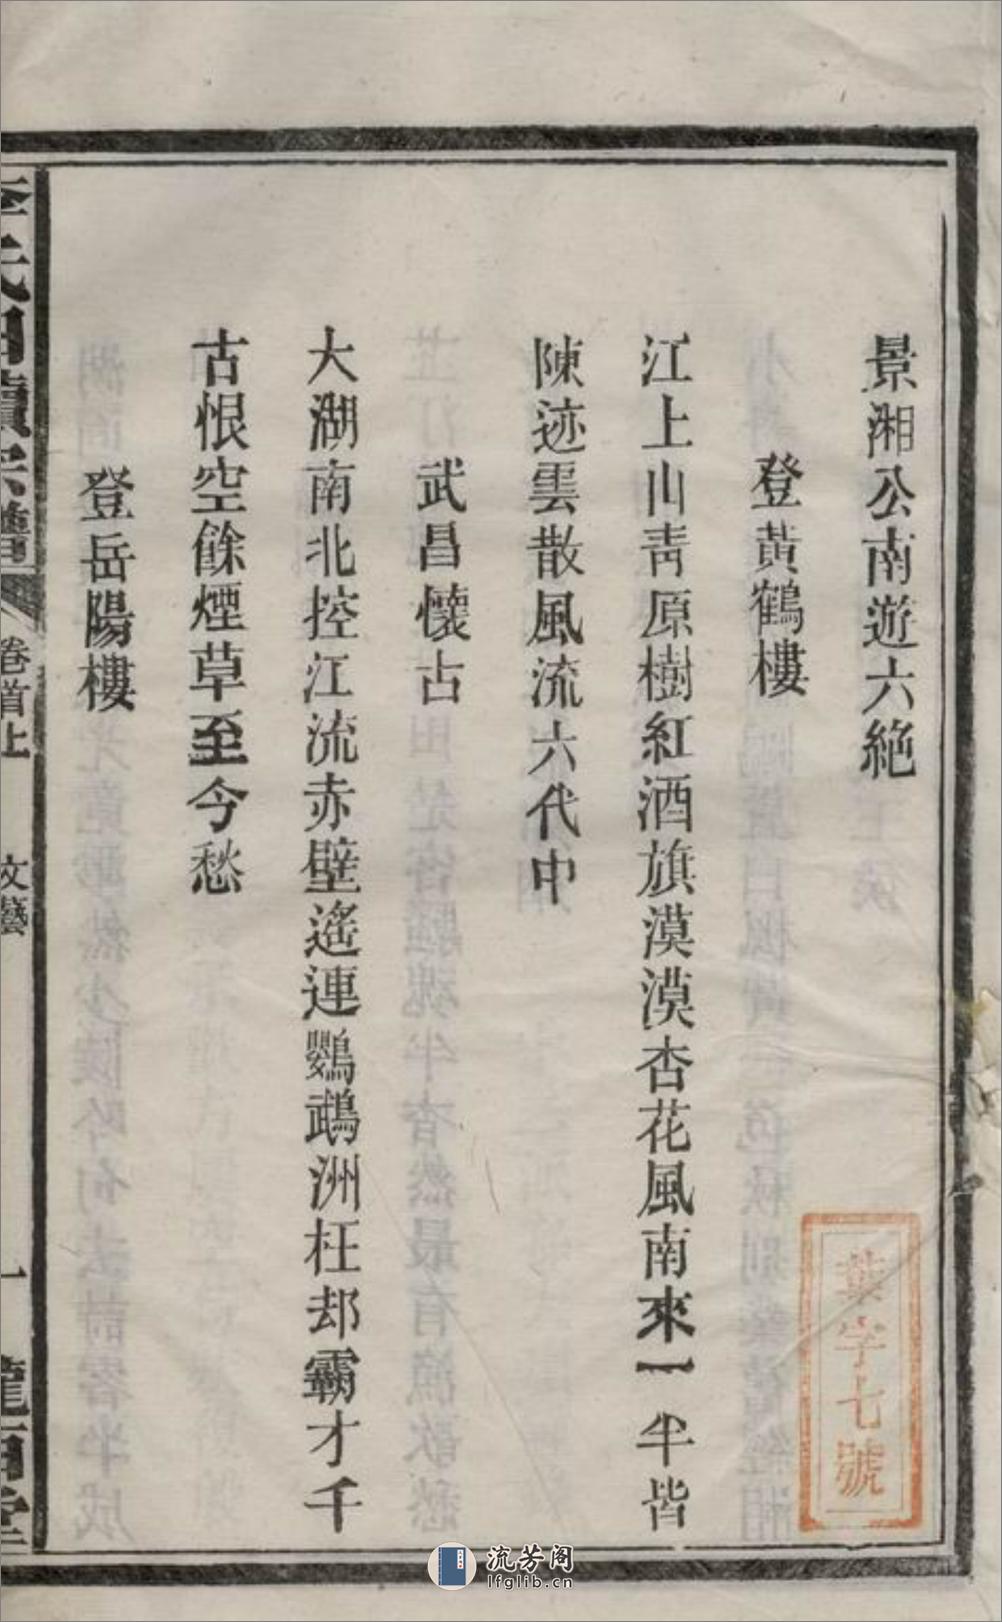 景湘公南遊六絕
登黃鶴樓
江上山青原樹紅酒旗漠漠杏花風南來一半皆
陳迹雲散風流六代中
武昌懷古
大湖南北控江流赤壁遙連鸚鵡洲枉却霸才千
古恨空餘煙草至今愁
登岳陽樓
卷首上
文藝
一
葉字七號
流芳阁
lfglib.cn